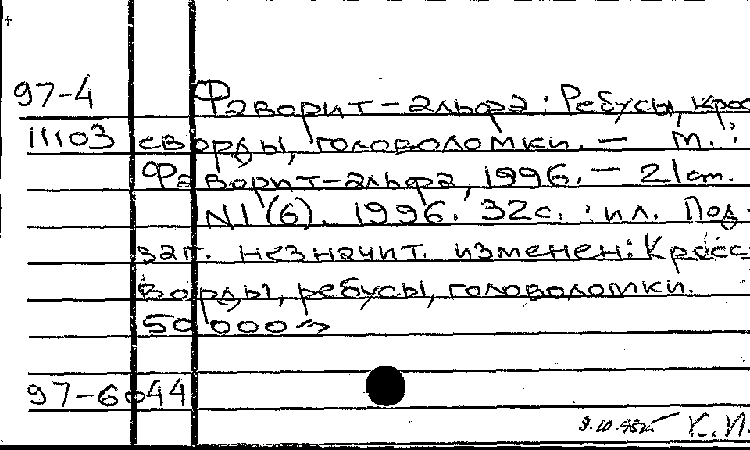 97-4 Фаворит-альфа: Ребусы, крос
11103 сворды, головоломки. — М.:
Фаворит-альфа, 1996. — 21 см.
N1 (6). 1996. 32 с. : ил. Под
заг. незначит. изменен: Кросс
ворды, ребусы, головоломки.
50 000 э
97-6044
К. И.